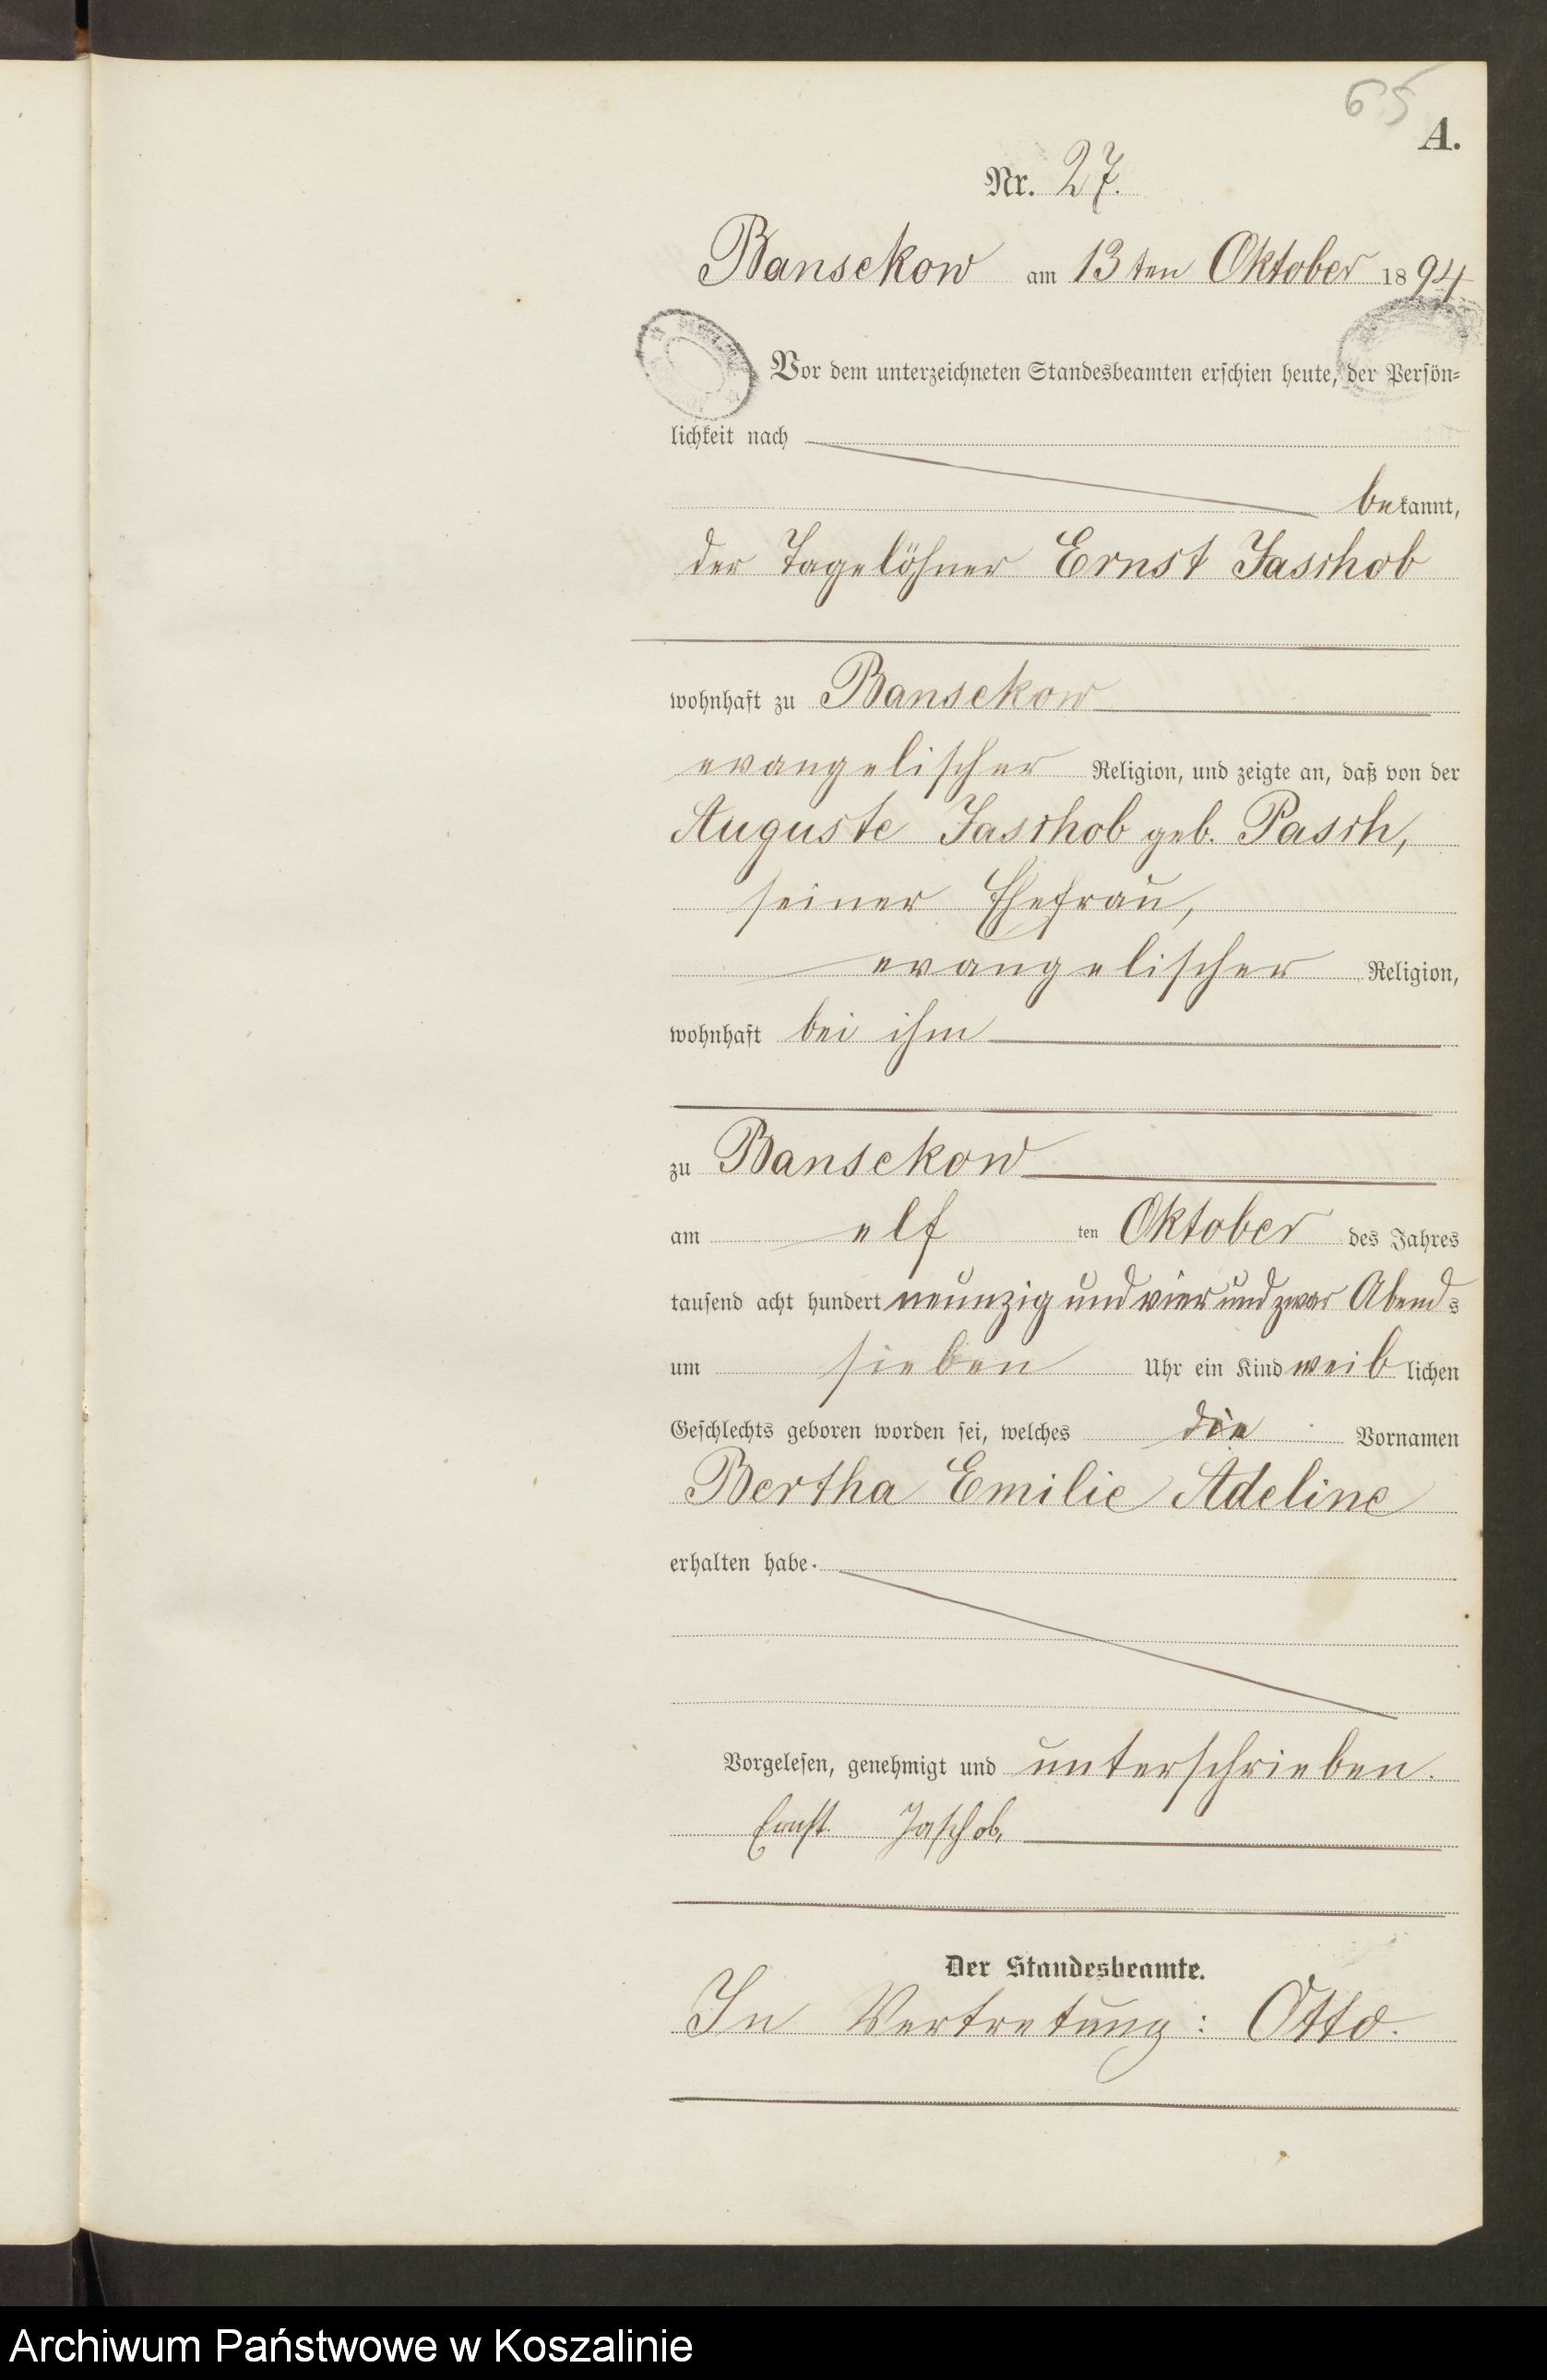 65
A.
Nr. 27.
Bansekow am 13ten Oktober 1894
Vor dem unterzeichneten Standesbeamten erschien heute, der Persön-
lichkeit nach
bekannt,
der Tagelöhner Ernst Jaschob
wohnhaft zu Bansekow
evangelischer Religion, und zeigte an, daß von der
Auguste Jaschob geb. Pasch,
seiner Ehefrau,
evangelischer Religion,
wohnhaft bei ihm
zu Bansekow
am elf ten Oktober des Jahres
tausend acht hundert neunzig und vier und zwar Abends
um sieben Uhr ein Kind weiblichen
Geschlechts geboren worden sei, welches die Vornamen
Bertha Emilie Adeline
erhalten habe.
Vorgelesen, genehmigt und unterschrieben.
Ernst Jaschob,
Der Standesbeamte.
In Vertretung: Otto.
Archiwum Państwowe w Koszalinie